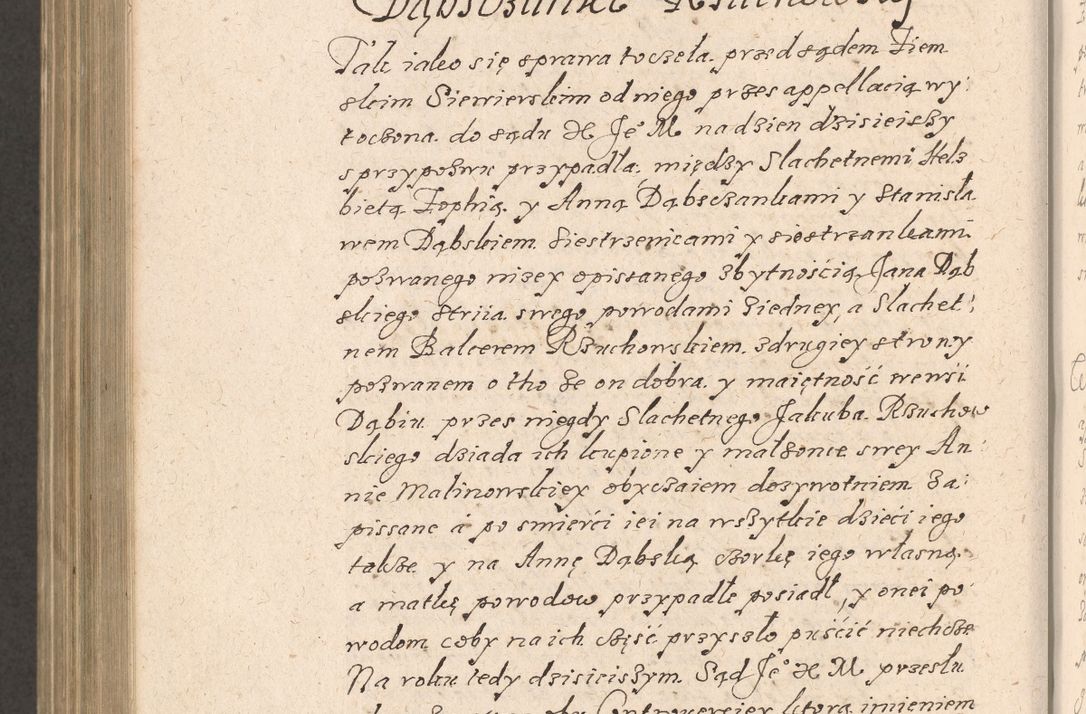 Dąbsczanki Rzuchowskij
Tak iako się sprawa toczeła. przed sądem Ziem
skim Siewierskim od niego przes appellacią wy
toczona. do sądu X Je° M. na dzien dzisieiszy
s przypozwu przypadła. między Slachetnemi Helz
bietą Zophią. y Anną Dąbsczankami y Stanisła
wem Dąbskiem. Siestrzenicami y siostrzankami
pozwanego nizey opissanego zbytnością Jana Dąb
skiego Striia swego powodami ziedney, a Slachet
nem Balcerem Rzuchowskiem. zdrugiey strony
pozwanem o tho że on dobra. y maiętność wewsi
Dąbiu przes niegdy Slachetnego Jakuba Rzuchow
skiego dziada ich kupione y małżonce swey An
nie Malinowskiey obyczaiem dozywotniem za
pissane á po smierći iei na wszytkie dzieći iego
także y na Annę Dąbską czorkę iego własną.
a matkę powodow przypadłe posiadł, y onei po
wodom coby na ich część przyszło puśćić niechce
Na roku tedy dzisieiszym. Sąd Je° X M. przesłu
Controuersiey ktorą imieniem